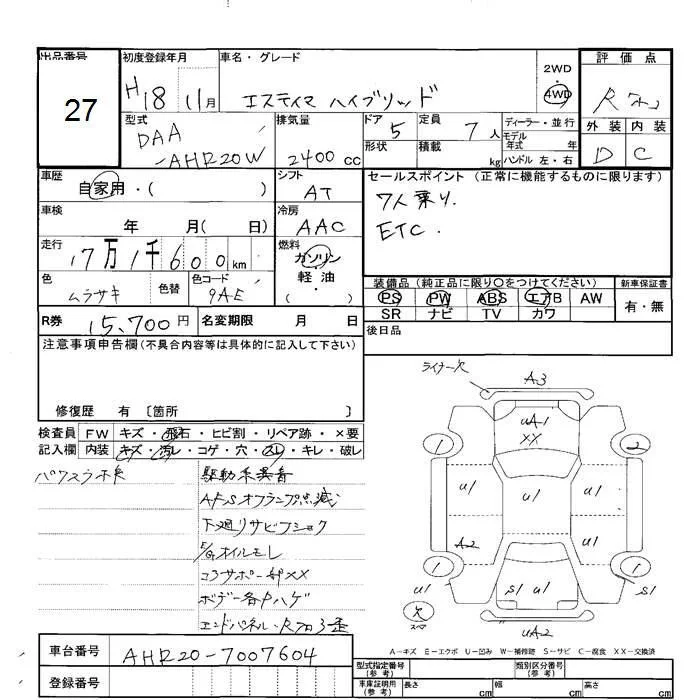 出品番号
27
初度登録年月
H18 11月
車名・グレード
エスティマ ハイブリッド
2WD
・
4WD
評価点
R
外装 内装
D C
型式
DAA
-AHR20W
排気量
2400 cc
ドア
5
定員
7人
形状
積載
kg
ディーラー・並行
モデル
年式 年
ハンドル 左・右
車歴
自家用・( )
シフト
AT
セールスポイント (正常に機能するものに限ります)
7人乗り.
ETC.
車検
年 月( 日)
冷房
AAC
走行
17万1千600km
燃料
ガソリン
軽油
( )
色
ムラサキ
色替
色コード
9AE
装備品(純正品に限り○をつけてください)
新車保証書
PS PW ABS エアB AW
SR ナビ TV カワ
有・無
R券
15,700円
名変期限 月 日
後日品
注意事項申告欄(不具合内容等は具体的に記入して下さい)
修復歴 有 〔箇所 〕
検査員
記入欄
FW キズ・飛石・ヒビ割・リペア跡・×要
内装 キズ・汚レ・コゲ・穴・スレ・キレ・破レ
駆動系異音
AFSオフランプ点滅
下廻りサビフショク
E/Gオイルモレ
コアサポート部XX
ボデー各部ハゲ
ライナー欠
A3
UA1
XX
1
2
U1
U1
U1
A2
U1
1
1
U1
S1
U1
S1
欠
スペア
UA2
車台番号
AHR20-7007604
登録番号
A-キズ E-エクボ U-凹み W-補修跡 S-サビ C-腐食 XX-交換済
型式指定番号
(参考)
類別区分番号
(参考)
車庫証明用
(参考)
長さ cm 幅 cm 高さ cm